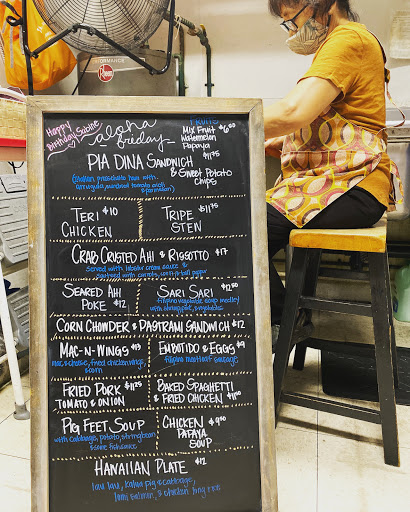 RHEEM
PERFORMANCE
Happy
Birthday Subine
aloha
friday
FRUITS
MIX FRUIT $6.50
WATERMELON
PAPAYA
PIA DINA SANDWICH $11.75
& SWEET POTATO
CHIPS
(Italian prosciutto ham with
arrugula, sundried tomato aioli
& parmesan)
TERI $10
CHICKEN
TRIPE $11.75
STEW
CRAB CRUSTED AHI & RISOTTO $17
served with lobster cream sauce &
sauteed with carrots, bell pepper
SEARED AHI
POKE $12
SARI SARI $12.50
filipino vegetable soup medley
with shrimp, pork, & vegetables
CORN CHOWDER & PASTRAMI SANDWICH $12
MAC-N-WINGS $13
mac & cheese, fried chicken wings,
& corn
EMBOTIDO & EGGS $9
filipino meatloaf sausage
FRIED PORK $11.25
TOMATO & ONION
BAKED SPAGHETTI
& FRIED CHICKEN $11.00
PIG FEET SOUP
with cabbage, potato, string beans
CHICKEN $9.00
PAPAYA
SOUP
HAWAIIAN PLATE $12
lau lau, kalua pig & cabbage,
lomi salmon, & chicken long rice